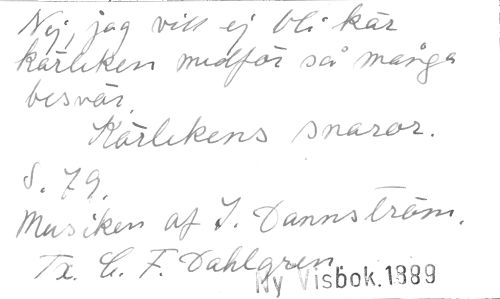 Nej, jag vill ej bli kär
kärleken medför så många
besvär.
Kärlekens snaror.
S. 79.
Musiken af I. Dannström.
Tx. C. F. Dahlgren
Ny Visbok.1889